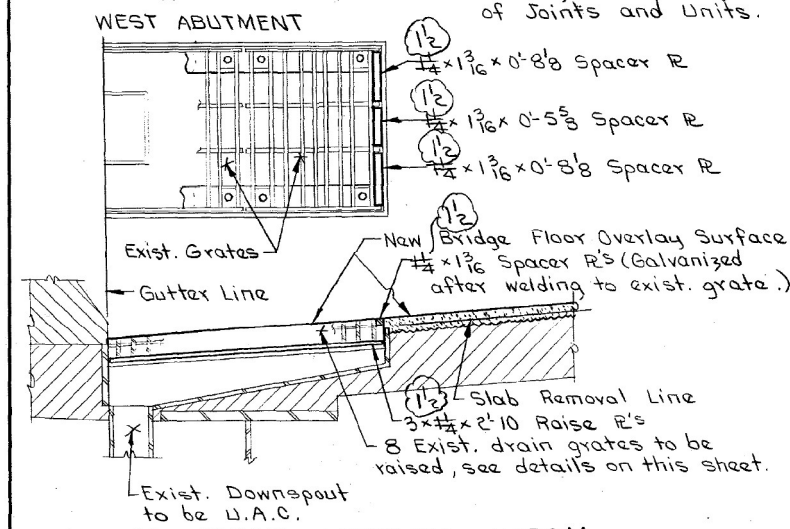 of Joints and Units.
WEST ABUTMENT
1½
1¼ × 1 3/16 × 0'-8⅛ Spacer ℞
1½
1¼ × 1 3/16 × 0'-5⅝ Spacer ℞
1½
1¼ × 1 3/16 × 0'-8⅛ Spacer ℞
1½
Exist. Grates
New Bridge Floor Overlay Surface
1¼ × 1 3/16 Spacer ℞'s (Galvanized
after welding to exist. grate.)
Gutter Line
1½
Slab Removal Line
3 × 1¼ × 2'-10 Raise ℞'s
8 Exist. drain grates to be
raised, see details on this sheet.
Exist. Downspout
to be U.A.C.